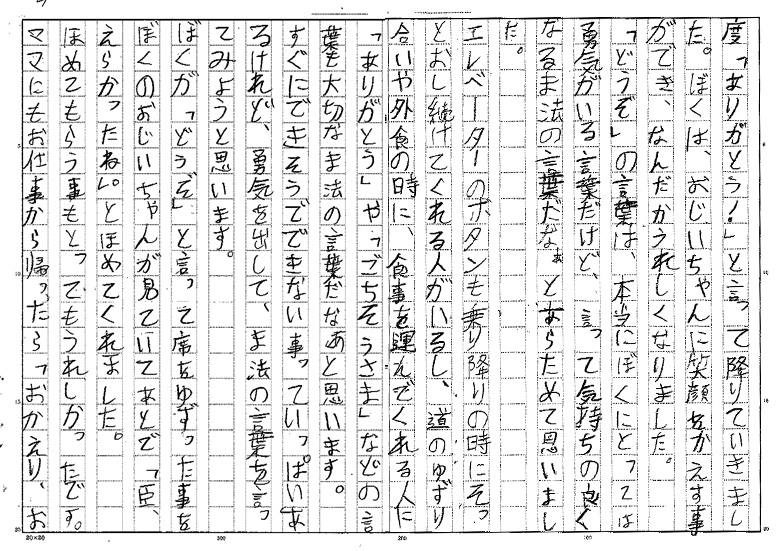 度「ありがとう！」と言って降りていきまし
た。ぼくは、おじいちゃんに笑顔をかえす事
ができ、なんだかうれしくなりました。
「どうぞ」の言葉は、本当にぼくにとっては
勇気がいる言葉だけど、言って気持ちの良く
なるま法の言葉だなぁとあらためて思いまし
た。
エレベーターのボタンも乗り降りの時にそっ
とおし続けてくれる人がいるし、道のゆずり
合いや外食の時に、食事を運んでくれる人に
「ありがとう」や「ごちそうさま」などの言
葉も大切なま法の言葉だなあと思います。
すぐにできそうでできない事っていっぱいあ
るけれど、勇気を出して、ま法の言葉を言っ
てみようと思います。
ぼくが「どうぞ」と言って席をゆずった事を
ぼくのおじいちゃんが見ていてあとで「臣、
えらかったね。」とほめてくれました。
ほめてもらう事もとってもうれしかったです。
ママにもお仕事から帰ったら「おかえり、お
20×20